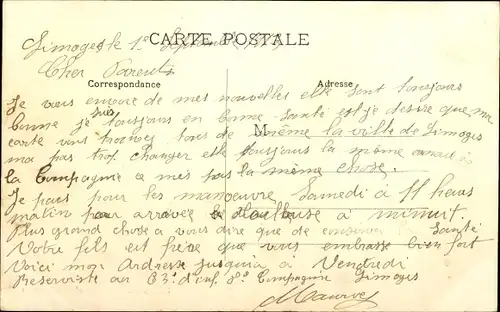 Limoges le 1er Septembre
CARTE POSTALE
Cher Parents
Correspondance
Adresse
Je vous envoie de mes nouvelles elle sont toujours
bonne je suis toujours en bonne santé et je desire que ma
carte vous trouvez tous de même la ville de Limoges
M
ma pas trop changer et toujours la même
la Compagnie a mes pas la même chose.
Je pars pour les manœuvre Samedi à 11 heures
matin pour arrivée à à minuit
Plus grand chose a vous dire que de conserver la Santé
Votre fils et frère que vous embrasse bien fort
Voici mon Ardresse jusquia à Vendredi
Reserviste au 63e d'inf. 8e Compagnie Limoges